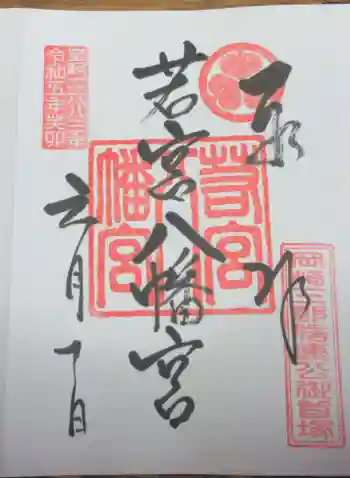 奉拝
岡崎三郎信康公御首塚
若宮八幡宮
若宮八幡宮
六月 日
皇紀二六八三年
令和五年癸卯